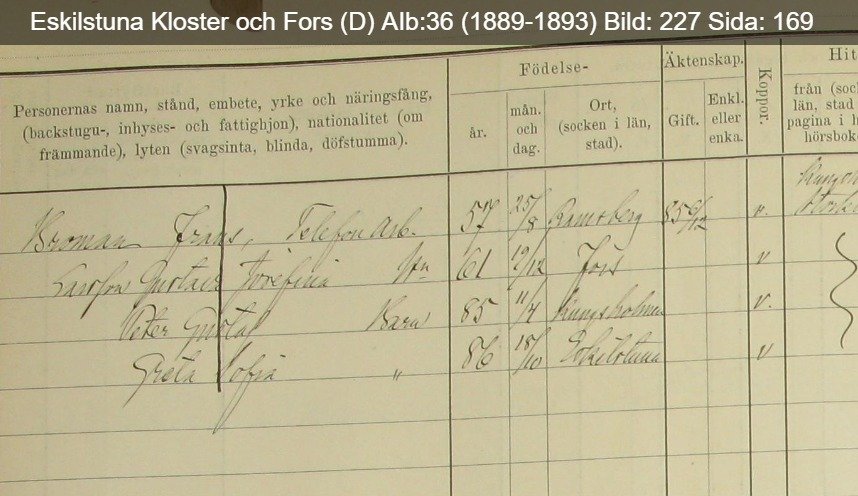 Eskilstuna Kloster och Fors (D) AIb:36 (1889-1893) Bild: 227 Sida: 169
Personernas namn, stånd, embete, yrke och näringsfång, (backstugu-, inhyses- och fattighjon), nationalitet (om främmande), lyten (svagsinta, blinda, döfstumma).
Födelse-
år.
mån. och dag.
Ort, (socken i län, stad).
Äktenskap.
Gift.
Enkl. eller enka.
Koppor.
Hit
från (soc
län, stad
pagina i h
hörsbok
Broman Frans, Telefon Arb. 57 25/8 Ramsberg 85 6/12 v.
Larsson Gustava Josefina Hu 61 19/12 Fors v
Peter Gustaf Barn 85 11/7 Kungsholmen v.
Greta Sofia " 86 18/10 Eskilstuna v